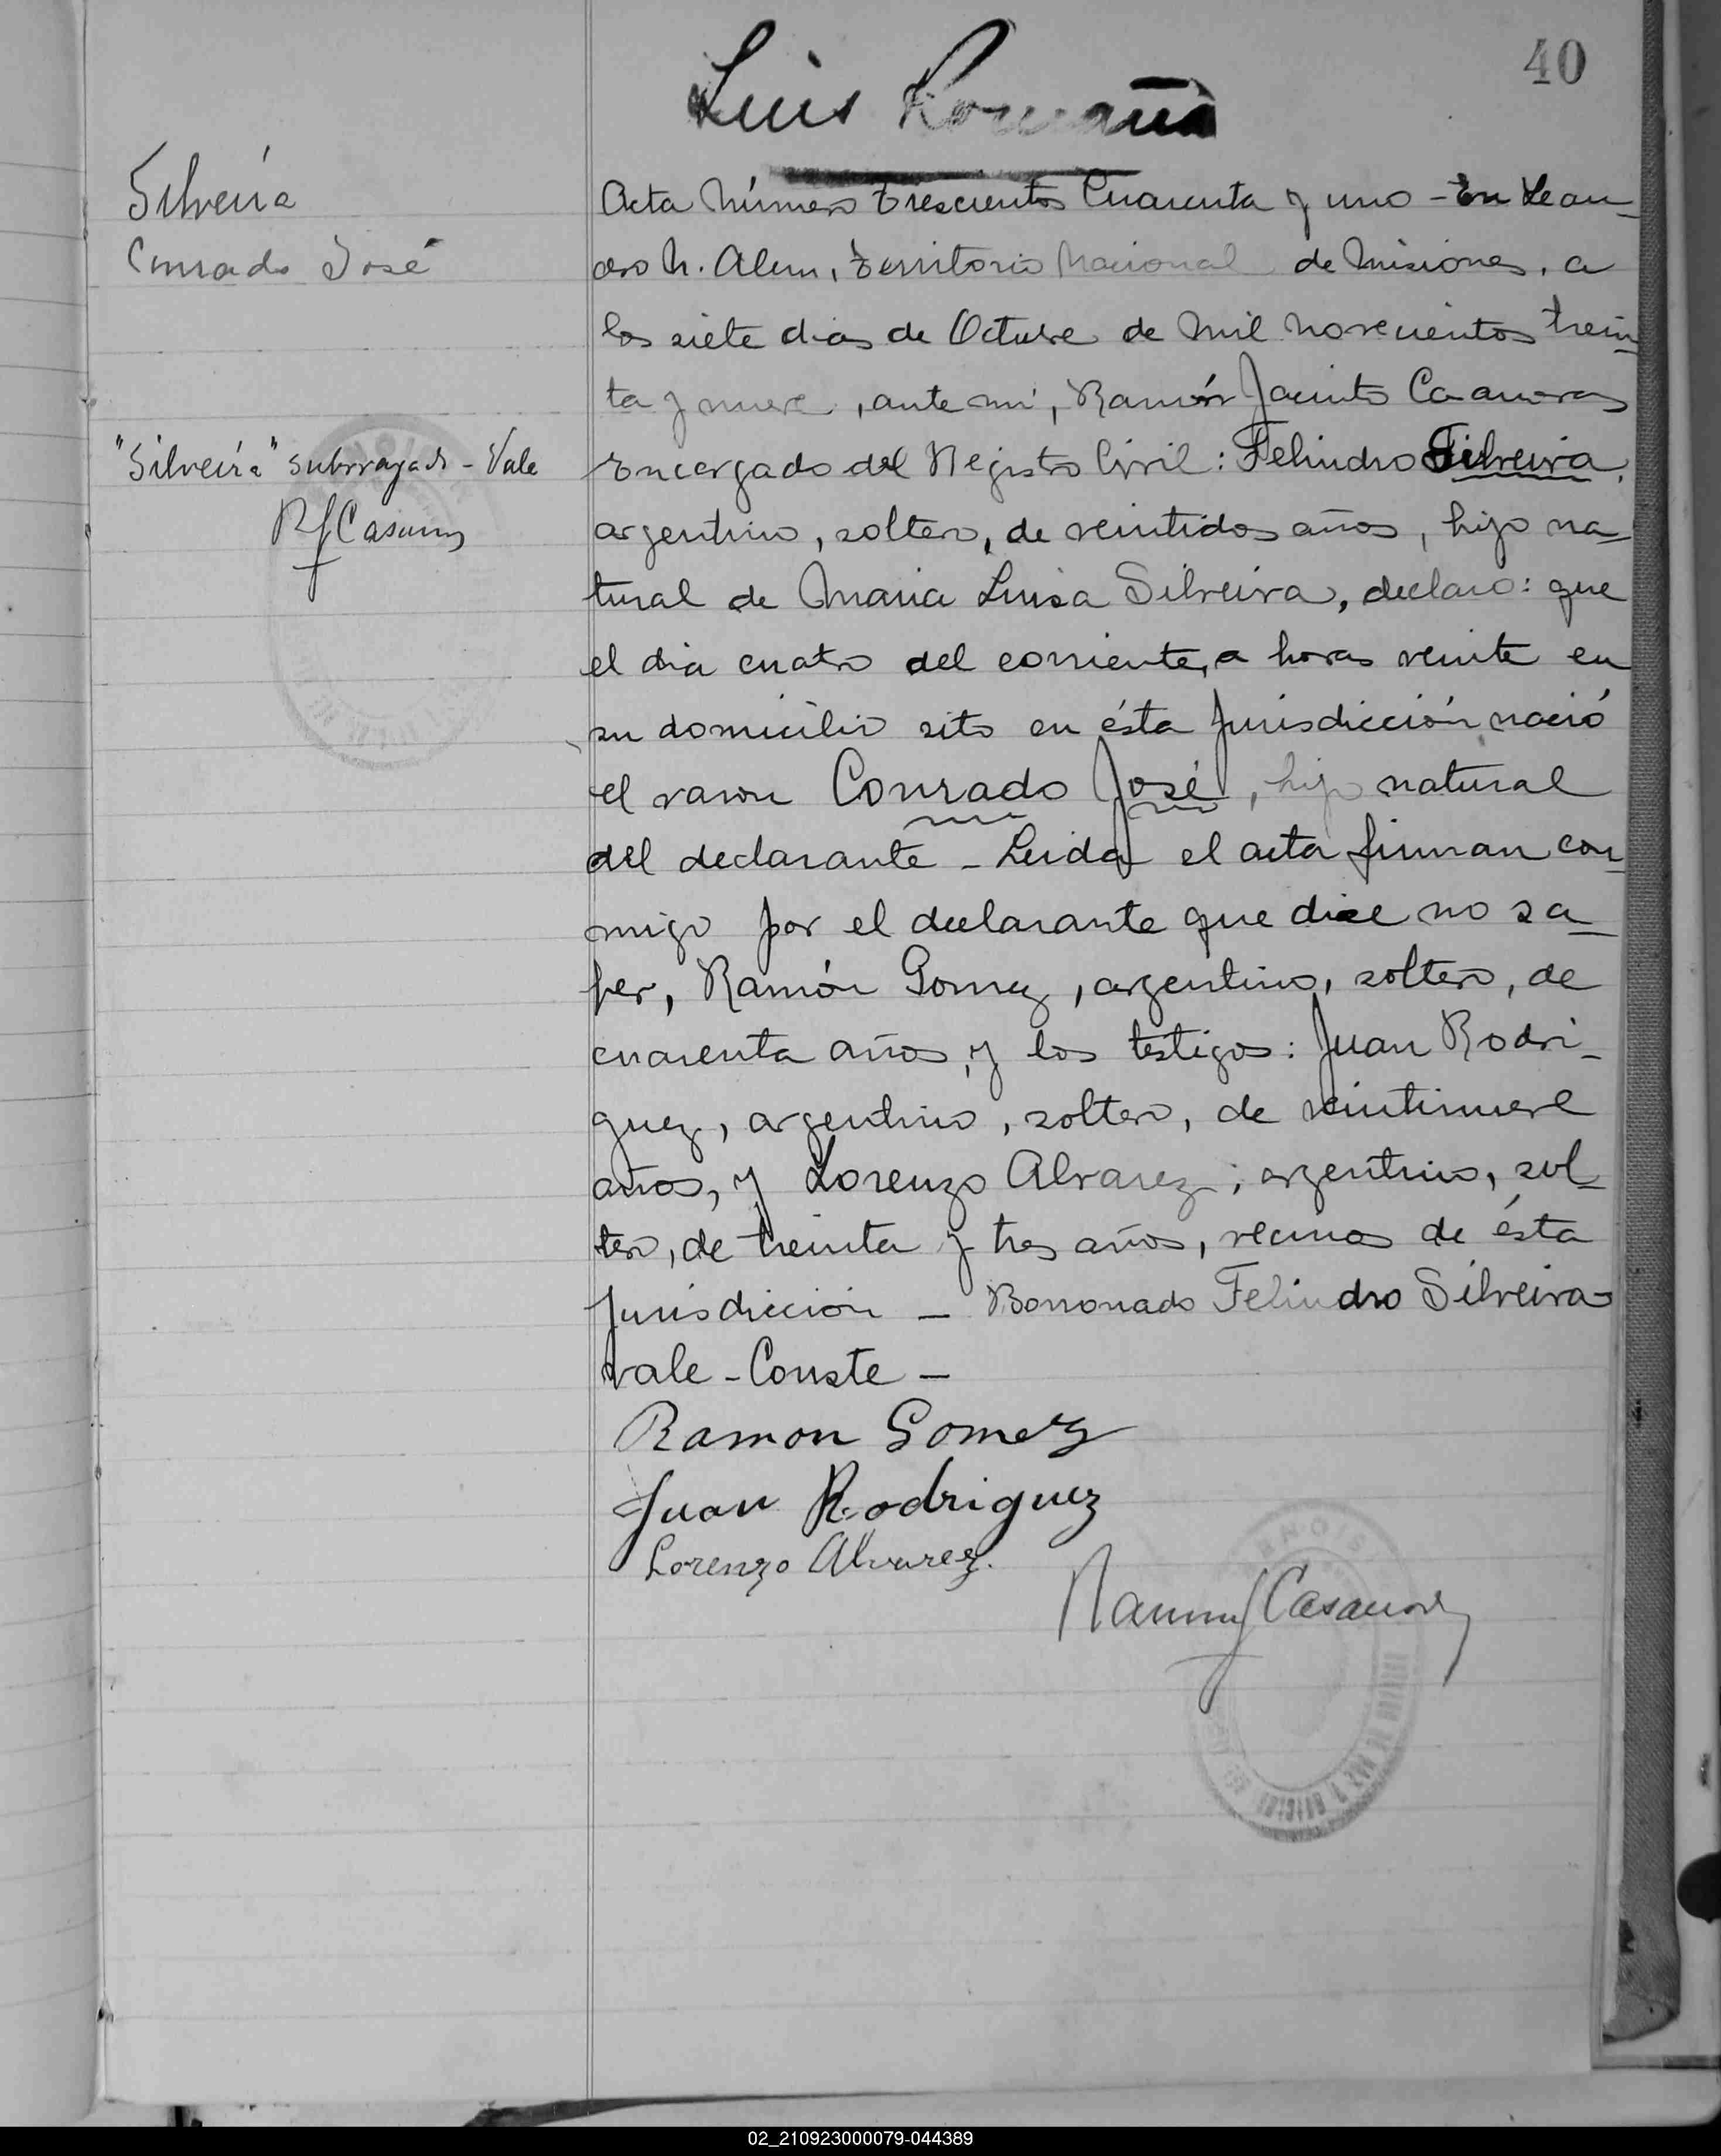 40
Luis Romañá
Silveira
Conrado José
"Silveira" subrrayado - Vale
RJCasanova
Acta Número trescientos Cuarenta y uno - En Lean-
dro N. Alem, territorio Nacional de Misiones, a
los siete dias de Octubre de mil novecientos trein-
ta y nueve, ante mi, Ramón Jacinto Casanova
Encargado del Registro Civil: Felindro Silveira,
argentino, soltero, de veintidos años, hijo na-
tural de Maria Luisa Silveira, declaro: que
el dia cuatro del corriente, a horas veinte en
su domicilio sito en ésta Jurisdicción nació
el varon Conrado José, hijo natural
del declarante - Leida el acta firman con-
migo por el declarante que dice no sa-
ber, Ramón Gomez, argentino, soltero, de
cuarenta años, y los testigos: Juan Rodri-
guez, argentino, soltero, de veintinueve
años, y Lorenzo Alvarez; argentino, sol-
tero, de treinta y tres años, vecinos de ésta
Jurisdiccion - Borronado Felindro Silveira
vale - Conste -
Ramon Gomez
Juan Rodriguez
Lorenzo Alvarez.
Ramon J Casanova
02_210923000079-044389